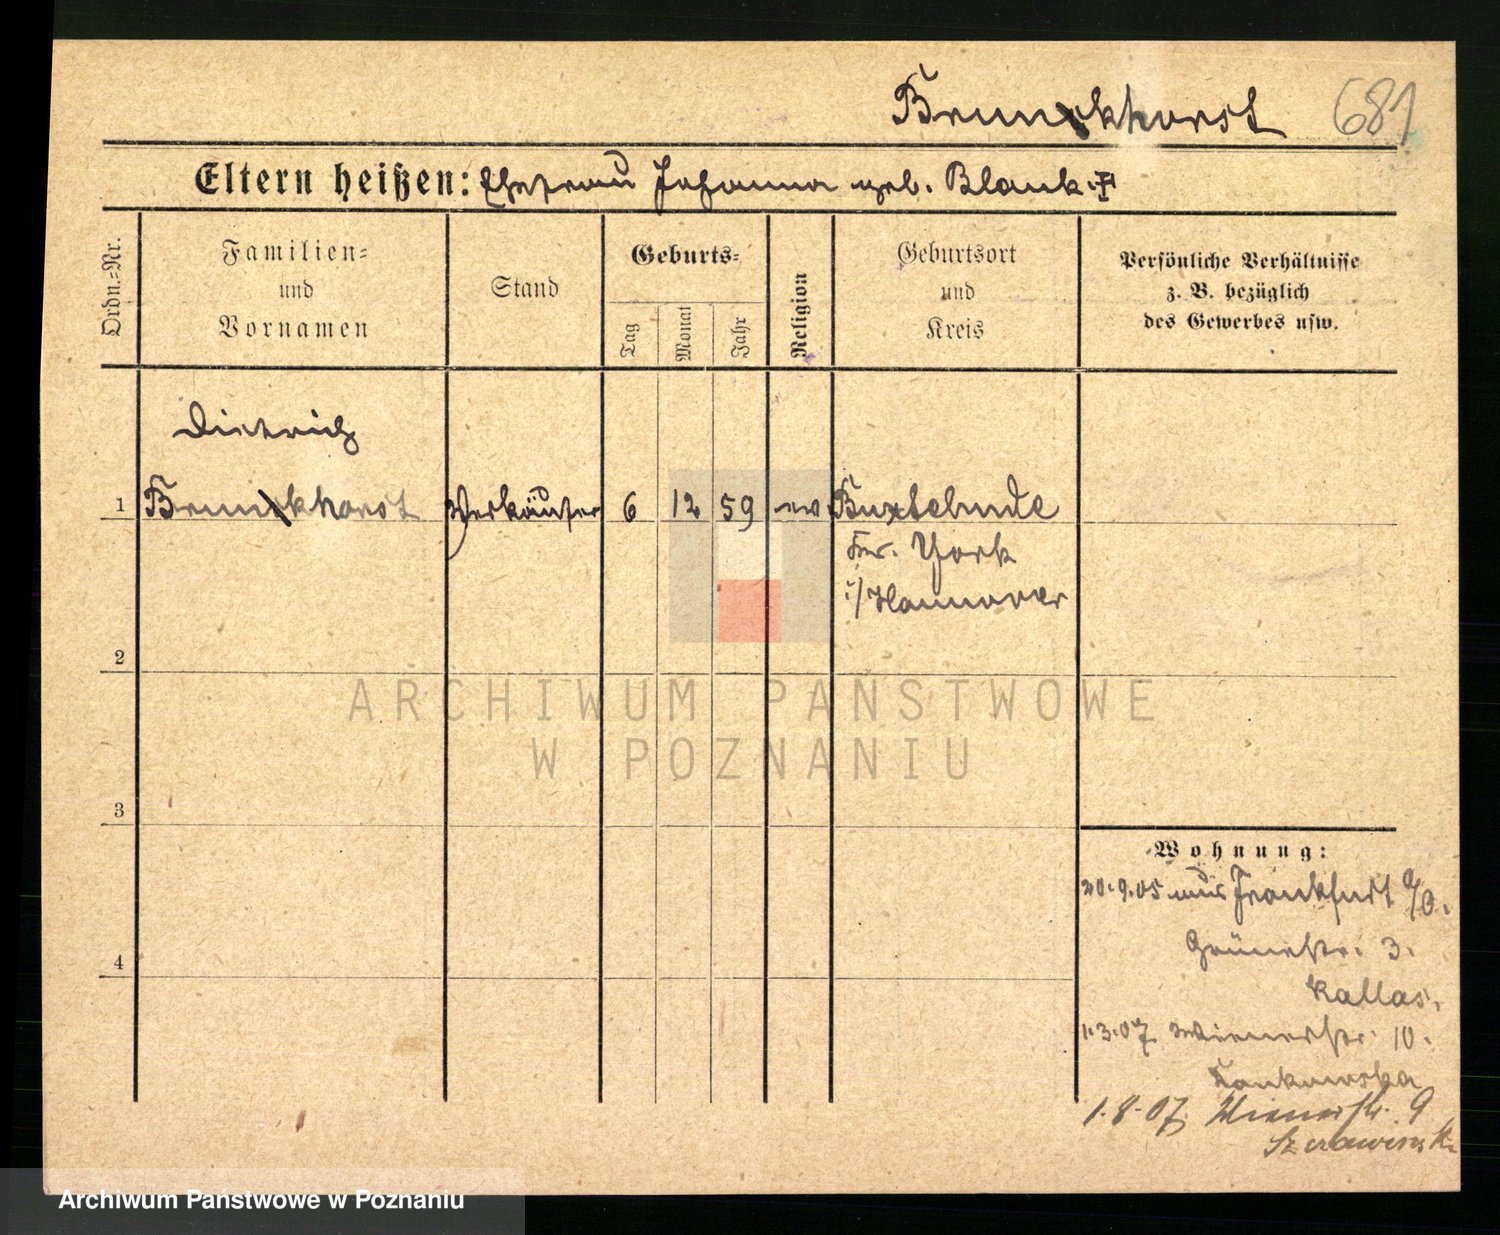 Brunckhorst 681
Eltern heißen: Ehefrau Johanna geb. Blank. †
Ordn.-Nr.
Familien-
und
Vornamen
Stand
Geburts-
Tag
Monat
Jahr
Religion
Geburtsort
und
Kreis
Persönliche Verhältnisse
z. B. bezüglich
des Gewerbes usw.
Dietrich
1 Brunckhorst Verkäufer 6 12 59 ev Buxtehude
Kr. York
i/Hannover
2
ARCHIWUM PAŃSTWOWE
W POZNANIU
3
Wohnung:
20.9.05 aus Frankfurt a/O.
Grünestr. 3.
Kallas.
4
1.3.07 Wienerstr. 10.
1.8.07. Wienerstr. 9
Archiwum Państwowe w Poznaniu